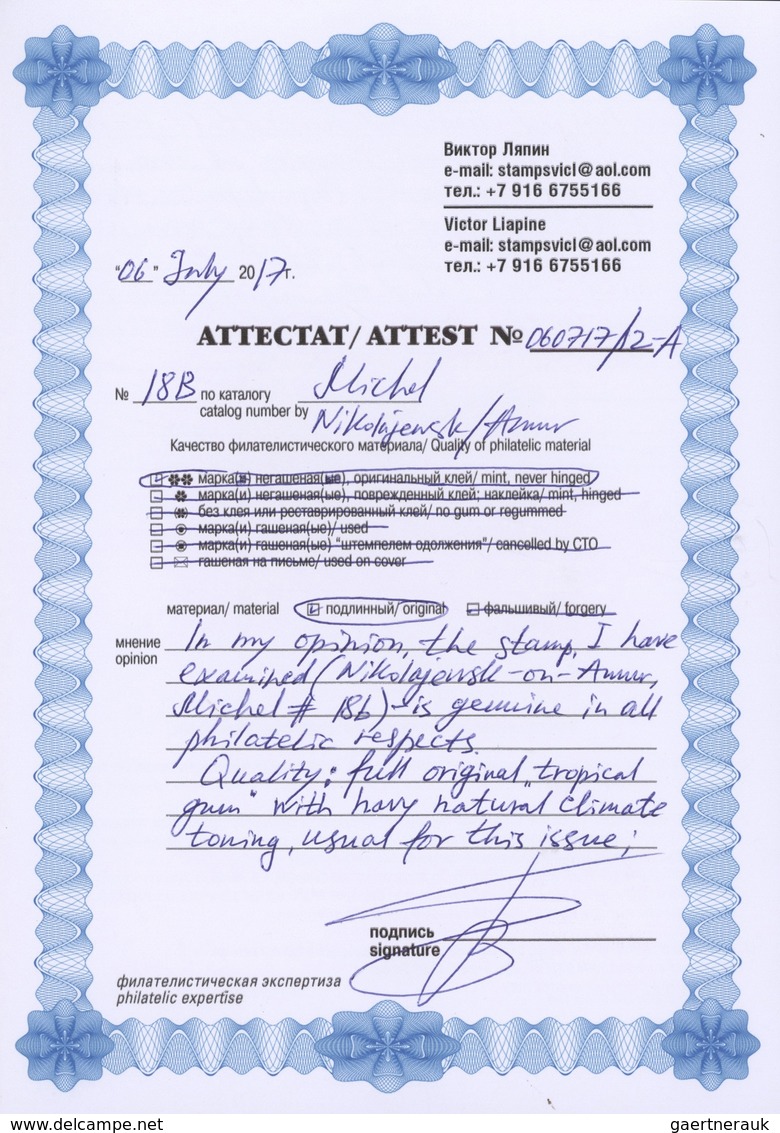 Виктор Ляпин
e-mail: stampsvicl@aol.com
тел.: +7 916 6755166
Victor Liapine
e-mail: stampsvicl@aol.com
тел.: +7 916 6755166
"06" July 2017 г.
АТТЕСТАТ/ ATTEST № 060717/12-A
№ 18B по каталогу Michel
catalog number by Nikolajewsk/Amur
Качество филателистического материала/ Quality of philatelic material
марка(и) негашеная(ые), оригинальный клей/ mint, never hinged
марка(и) негашеная(ые), поврежденный клей; наклейка/ mint, hinged
без клея или реставрированный клей/ no gum or regummed
марка(и) гашеная(ые)/ used
марка(и) гашеная(ые) "штемпелем одолжения"/ cancelled by CTO
гашеная на письме/ used on cover
материал/ material подлинный/ original фальшивый/ forgery
мнение In my opinion, the stamp, I have
opinion examined (Nikolajewsk-on-Amur,
Michel # 18b) - is genuine in all
philatelic respects.
Quality: full original „tropical
gum" with havy natural climate
toning, usual for this issue;
подпись
signature
филателистическая экспертиза
philatelic expertise
www.delcampe.net
gaertnerauk